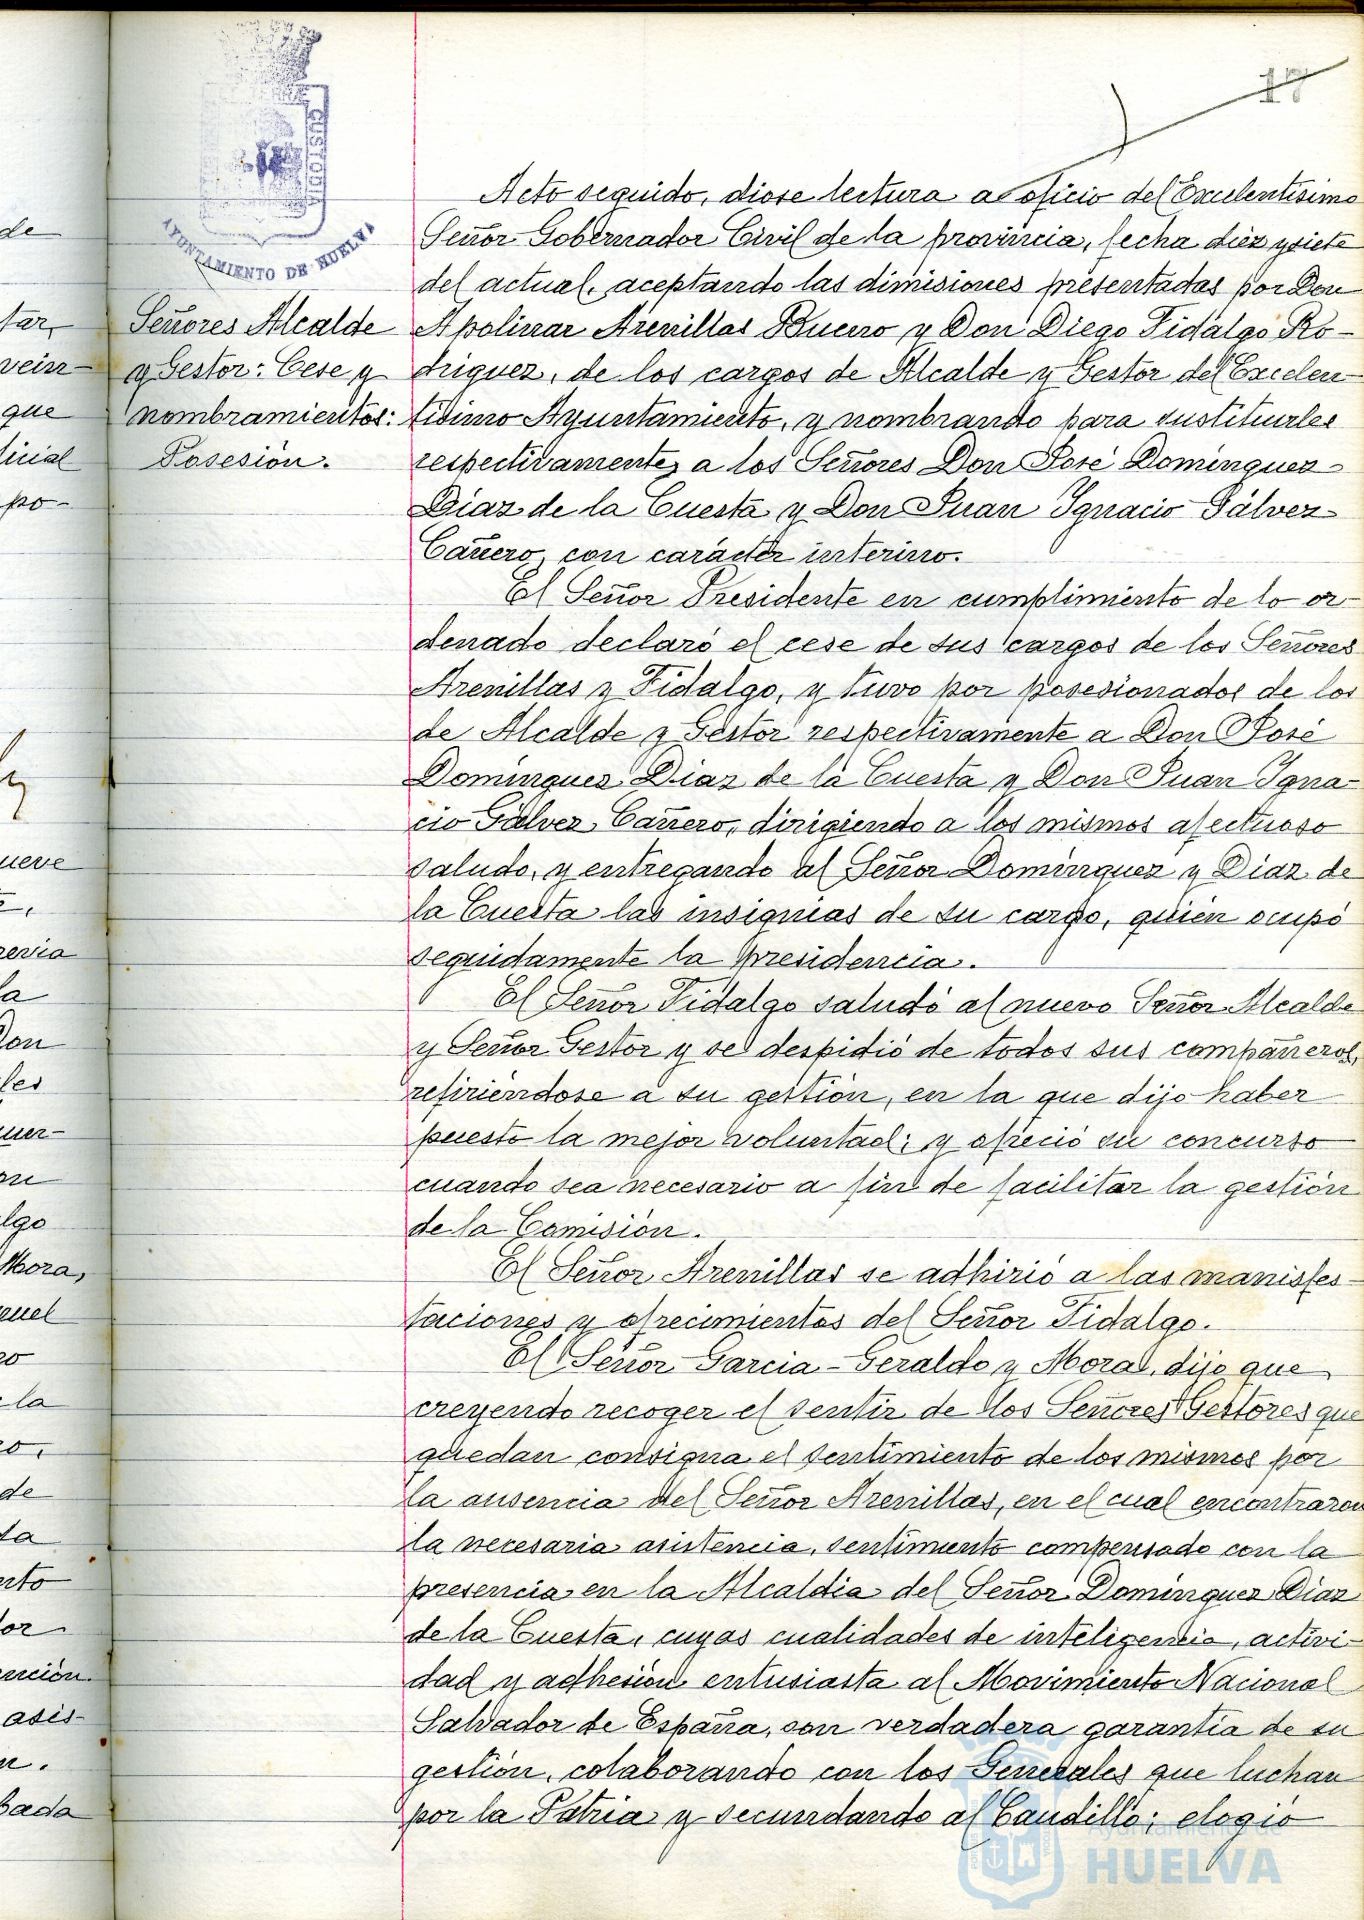 17
TERRAE
CUSTODIA
AYUNTAMIENTO DE HUELVA
Señores Alcalde
y Gestor: Cese y
nombramientos:
Posesión.
Acto seguido, diose lectura a oficio del Excelentísimo
Señor Gobernador Civil de la provincia, fecha diez y siete
del actual, aceptando las dimisiones presentadas por Don
Apolinar Arenillas Bueno y Don Diego Fidalgo Ro-
driguez, de los cargos de Alcalde y Gestor del Excelen-
tísimo Ayuntamiento, y nombrando para sustituirles
respectivamente, a los Señores Don José Domínguez
Díaz de la Cuesta y Don Juan Ignacio Gálvez
Cañero, con carácter interino.
El Señor Presidente en cumplimiento de lo or-
denado declaró el cese de sus cargos de los Señores
Arenillas y Fidalgo, y tuvo por posesionados de los
de Alcalde y Gestor respectivamente a Don José
Domínguez Díaz de la Cuesta y Don Juan Igna-
cio Gálvez Cañero, dirigiendo a los mismos afectuoso
saludo, y entregando al Señor Domínguez y Díaz de
la Cuesta las insignias de su cargo, quién ocupó
seguidamente la presidencia.
El Señor Fidalgo saludó al nuevo Señor Alcalde
y Señor Gestor y se despidió de todos sus compañeros,
refiriéndose a su gestión, en la que dijo haber
puesto la mejor voluntad; y ofreció su concurso
cuando sea necesario a fin de facilitar la gestión
de la Comisión.
El Señor Arenillas se adhirió a las manisfes-
taciones y ofrecimientos del Señor Fidalgo.
El Señor Garcia-Geraldo y Mora, dijo que
creyendo recoger el sentir de los Señores Gestores que
quedan consigna el sentimiento de los mismos por
la ausencia del Señor Arenillas, en el cual encontraron
la necesaria asistencia, sentimiento compensado con la
presencia en la Alcaldia del Señor Domínguez Díaz
de la Cuesta, cuyas cualidades de inteligencia, activi-
dad y adhesión entusiasta al Movimiento Nacional
Salvador de España, son verdadera garantía de su
gestión, colaborando con los Generales que luchan
por la Patria y secundando al Caudillo; elogió
Ayuntamiento de
HUELVA